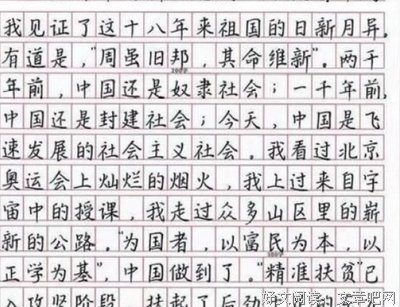 我见证了这十八年来祖国的日新月异。
有道是，“周虽旧邦，其命维新”。两千
年前，中国还是奴隶社会；一千年前，
中国还是封建社会；今天，中国是飞
速发展的社会主义社会。我看过北京
奥运会上灿烂的烟火，我上过来自宇
宙中的授课，我走过众多山区里的崭
新的公路。“为国者，以富民为本，以
正学为基”，中国做到了。“精准扶贫”已
入攻坚阶段
好文阅读：文章吧网